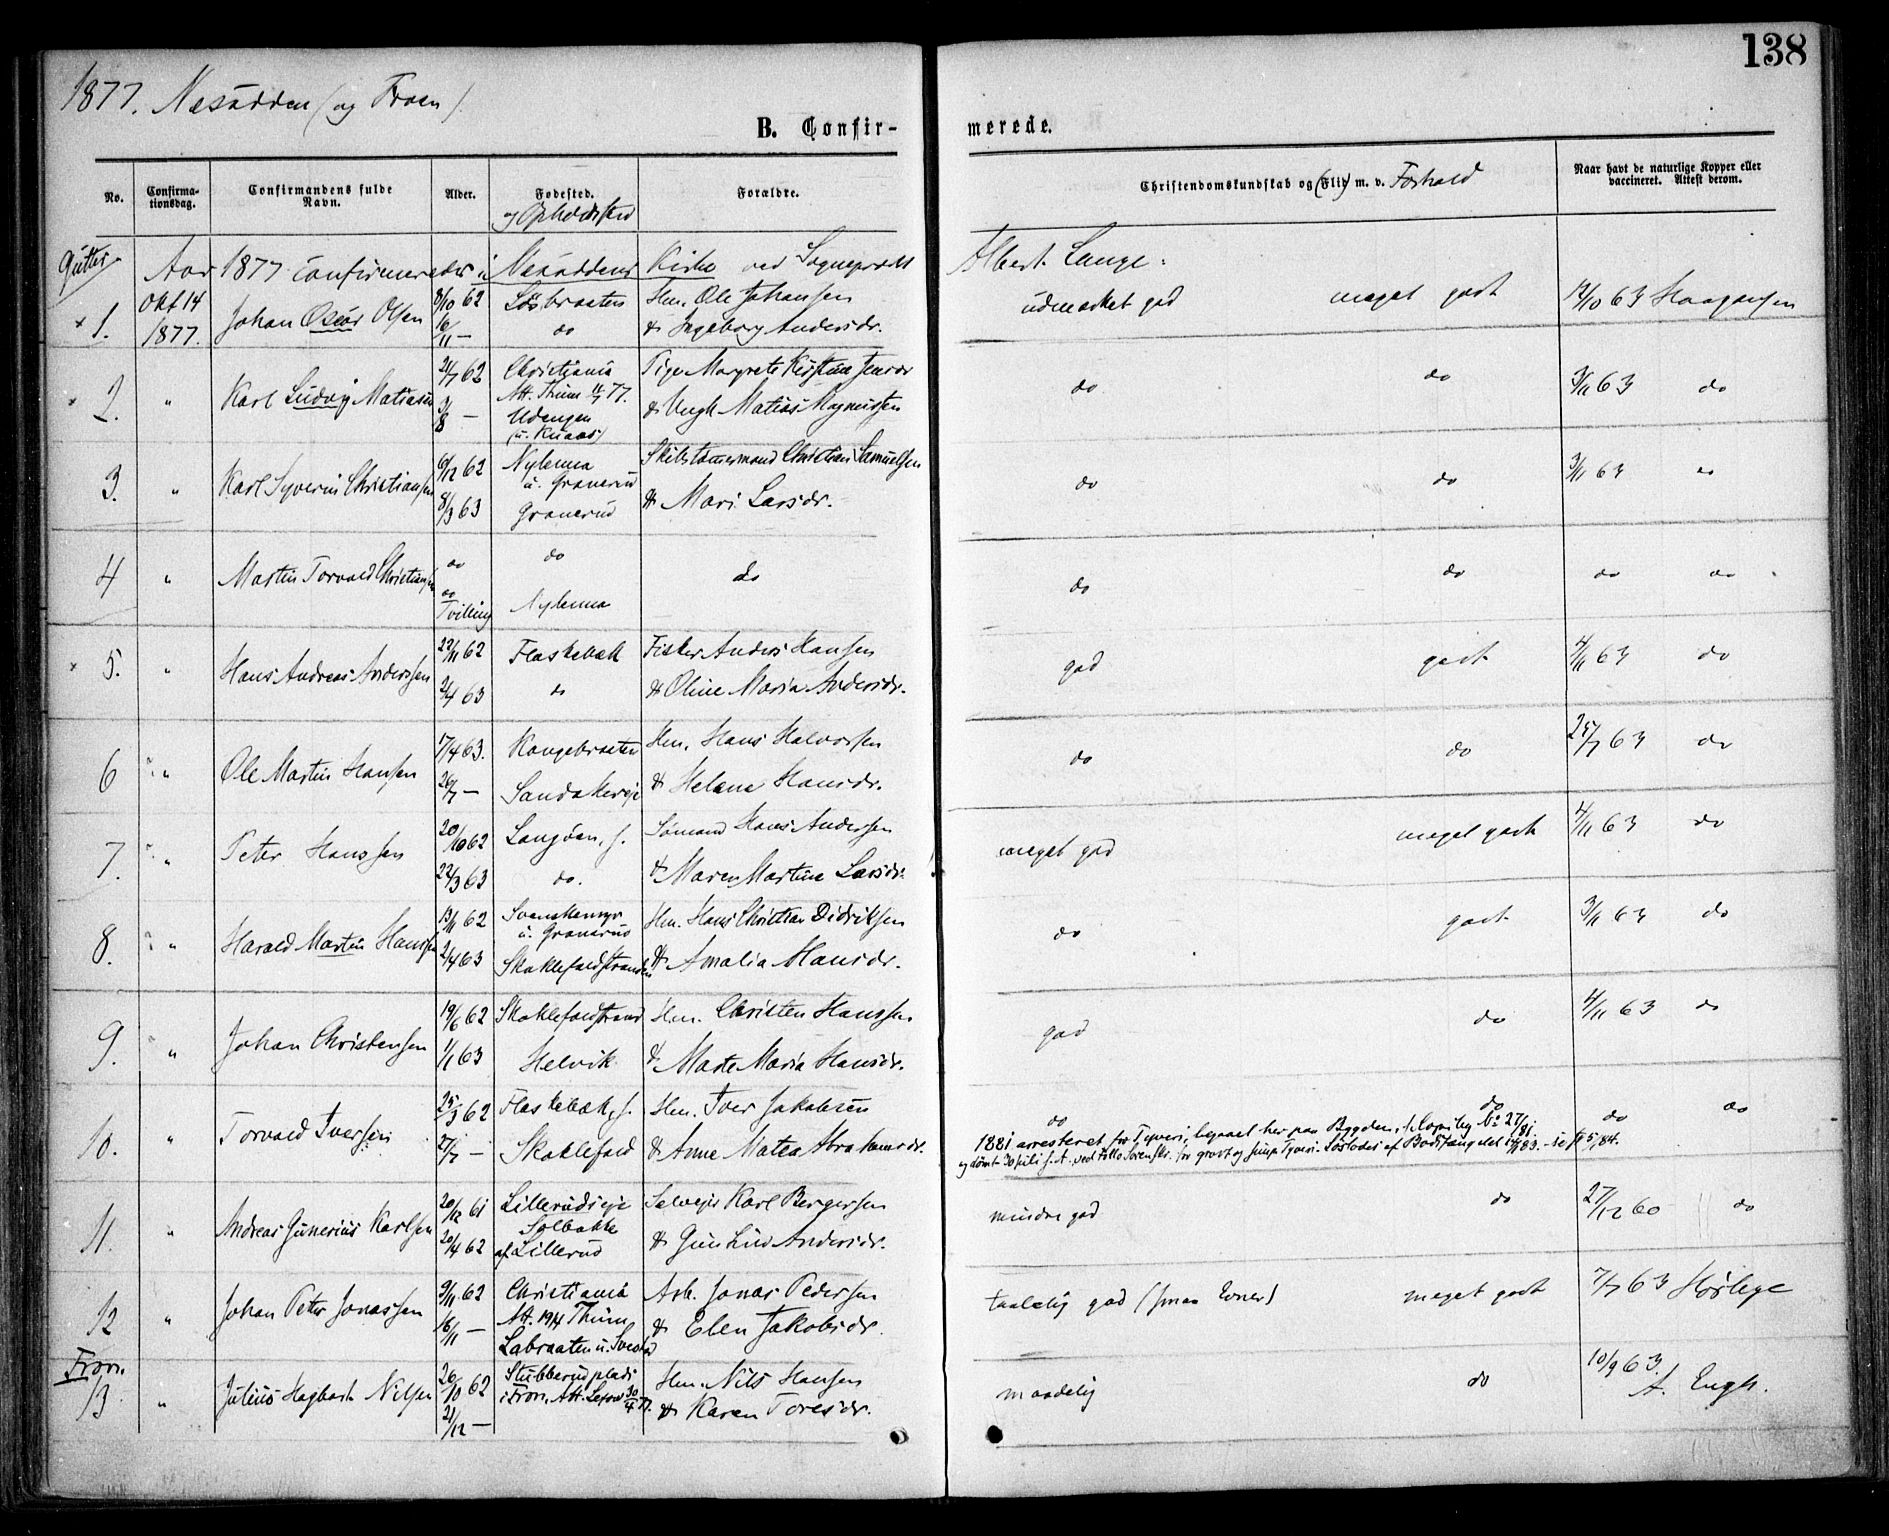 138
1877. Nesodden (og Froen).
B. Confir- merede.
No. Confirma-tionsdag. Confirmandens fulde Navn. Alder. Fødested. og Opholdssted Forældre. Christendomskundskab og (Flid) m. v. Forhold Naar havt de naturlige Kopper eller vaccineret. Attest derom.
Gutter
Aar 1877 confirmerede i Nesoddens Kirke ved Sognepræst Albert Lange:
1. Okt 14 1877. Johan Oscar Olsen 8/10 62 Løsbraaten Hm. Ole Johansen udmærket god meget godt 12/10 63 Haagensen
16/11 — do & Ingeborg Andersdr.
2. " Karl Ludvig Matiasen 21/7 62 Christiania Pige Margrete Kirstine Jensdr do do 3/11 63 do
3/8 — Att. Thim 11/5 77. & Ungk Matias Magnussen
Udengen
(u. Knaas)
3. " Karl Syverin Christiansen 6/12 62 Nylenna Skibstømermand Christian Samuelsen do do 3/11 63 do
u. Granerud
8/3 63 Granerud & Mari Larsdr.
4 " Martin Torvald Christiansen do do do do do do do
do
Tvilling Nylenna
5. " Hans Andreas Anderssen 22/11 62 Flaskebæk Fisker Anders Hansen god godt 4/11 63 do
2/4 63 do & Oline Maria Andersdr.
6 " Ole Martin Hansen 17/4 63. Kongebraaten Hm. Hans Halvorsen do do 25/7 63 do
26/7 — Sandakereje & Helene Hansdr.
7. " Peter Hanssen 20/10 62 Langøen, s. Sømand Hans Andersen meget god meget godt 4/11 63 do
22/3 63 do. & Maren Martine Larsdr.
8. " Harald Martin Hanssen 13/11 62 Svenskemyr Hm. Hans Christian Didriksen do godt 3/11 63 do
u. Granerud
2/4 63 Skoklefaldstranden & Amalia Hansdr.
9. " Johan Christensen 19/6 62 Skoklefaldstrand Hm. Christen Hanssen god do 4/11 63 do
1/1 63 Helvik & Marte Maria Hansdr.
10. " Torvald Iversen 25/3 62 Flaskebæk, s. Hm. Iver Jakobsen do do do do
27/7 — Skoklefald & Anne Matea Abrahamsdr.
1881 arresteret for Tyveri, begaaet her paa Bygden, s. Copibog No 27/81.
og dømt 30 juli s. A. ved Follo Sorenskr. for grovt og simpt Tyveri. Løslades af Bodsfængslet 83. se 5/84.
11. " Andreas Gunerius Karlsen 20/12 61 Lillerudseje Selvejer Karl Bergersen mindre god do 27/12 60 do
Solbakke
20/4 62 af Lillerud & Gunhild Andersdr.
12 " Johan Peter Jonassen 9/11 62 Christiania Arb. Jonas Pedersen taalelig god (smaa Evner) meget godt 7/7 63 Hørbye
Att. 19/4 Thim,
16/11 — Labraaten u. Svestad & Elen Jakobsdr.
Fron.
13. " Julius Hagbart Nilsen 26/10 62 Stubberud plads Hm. Nils Hansen maadelig do 10/9 63.
i Fron. Att. 30/4 77. A. Engh.
21/12 — & Karen Toresdr.